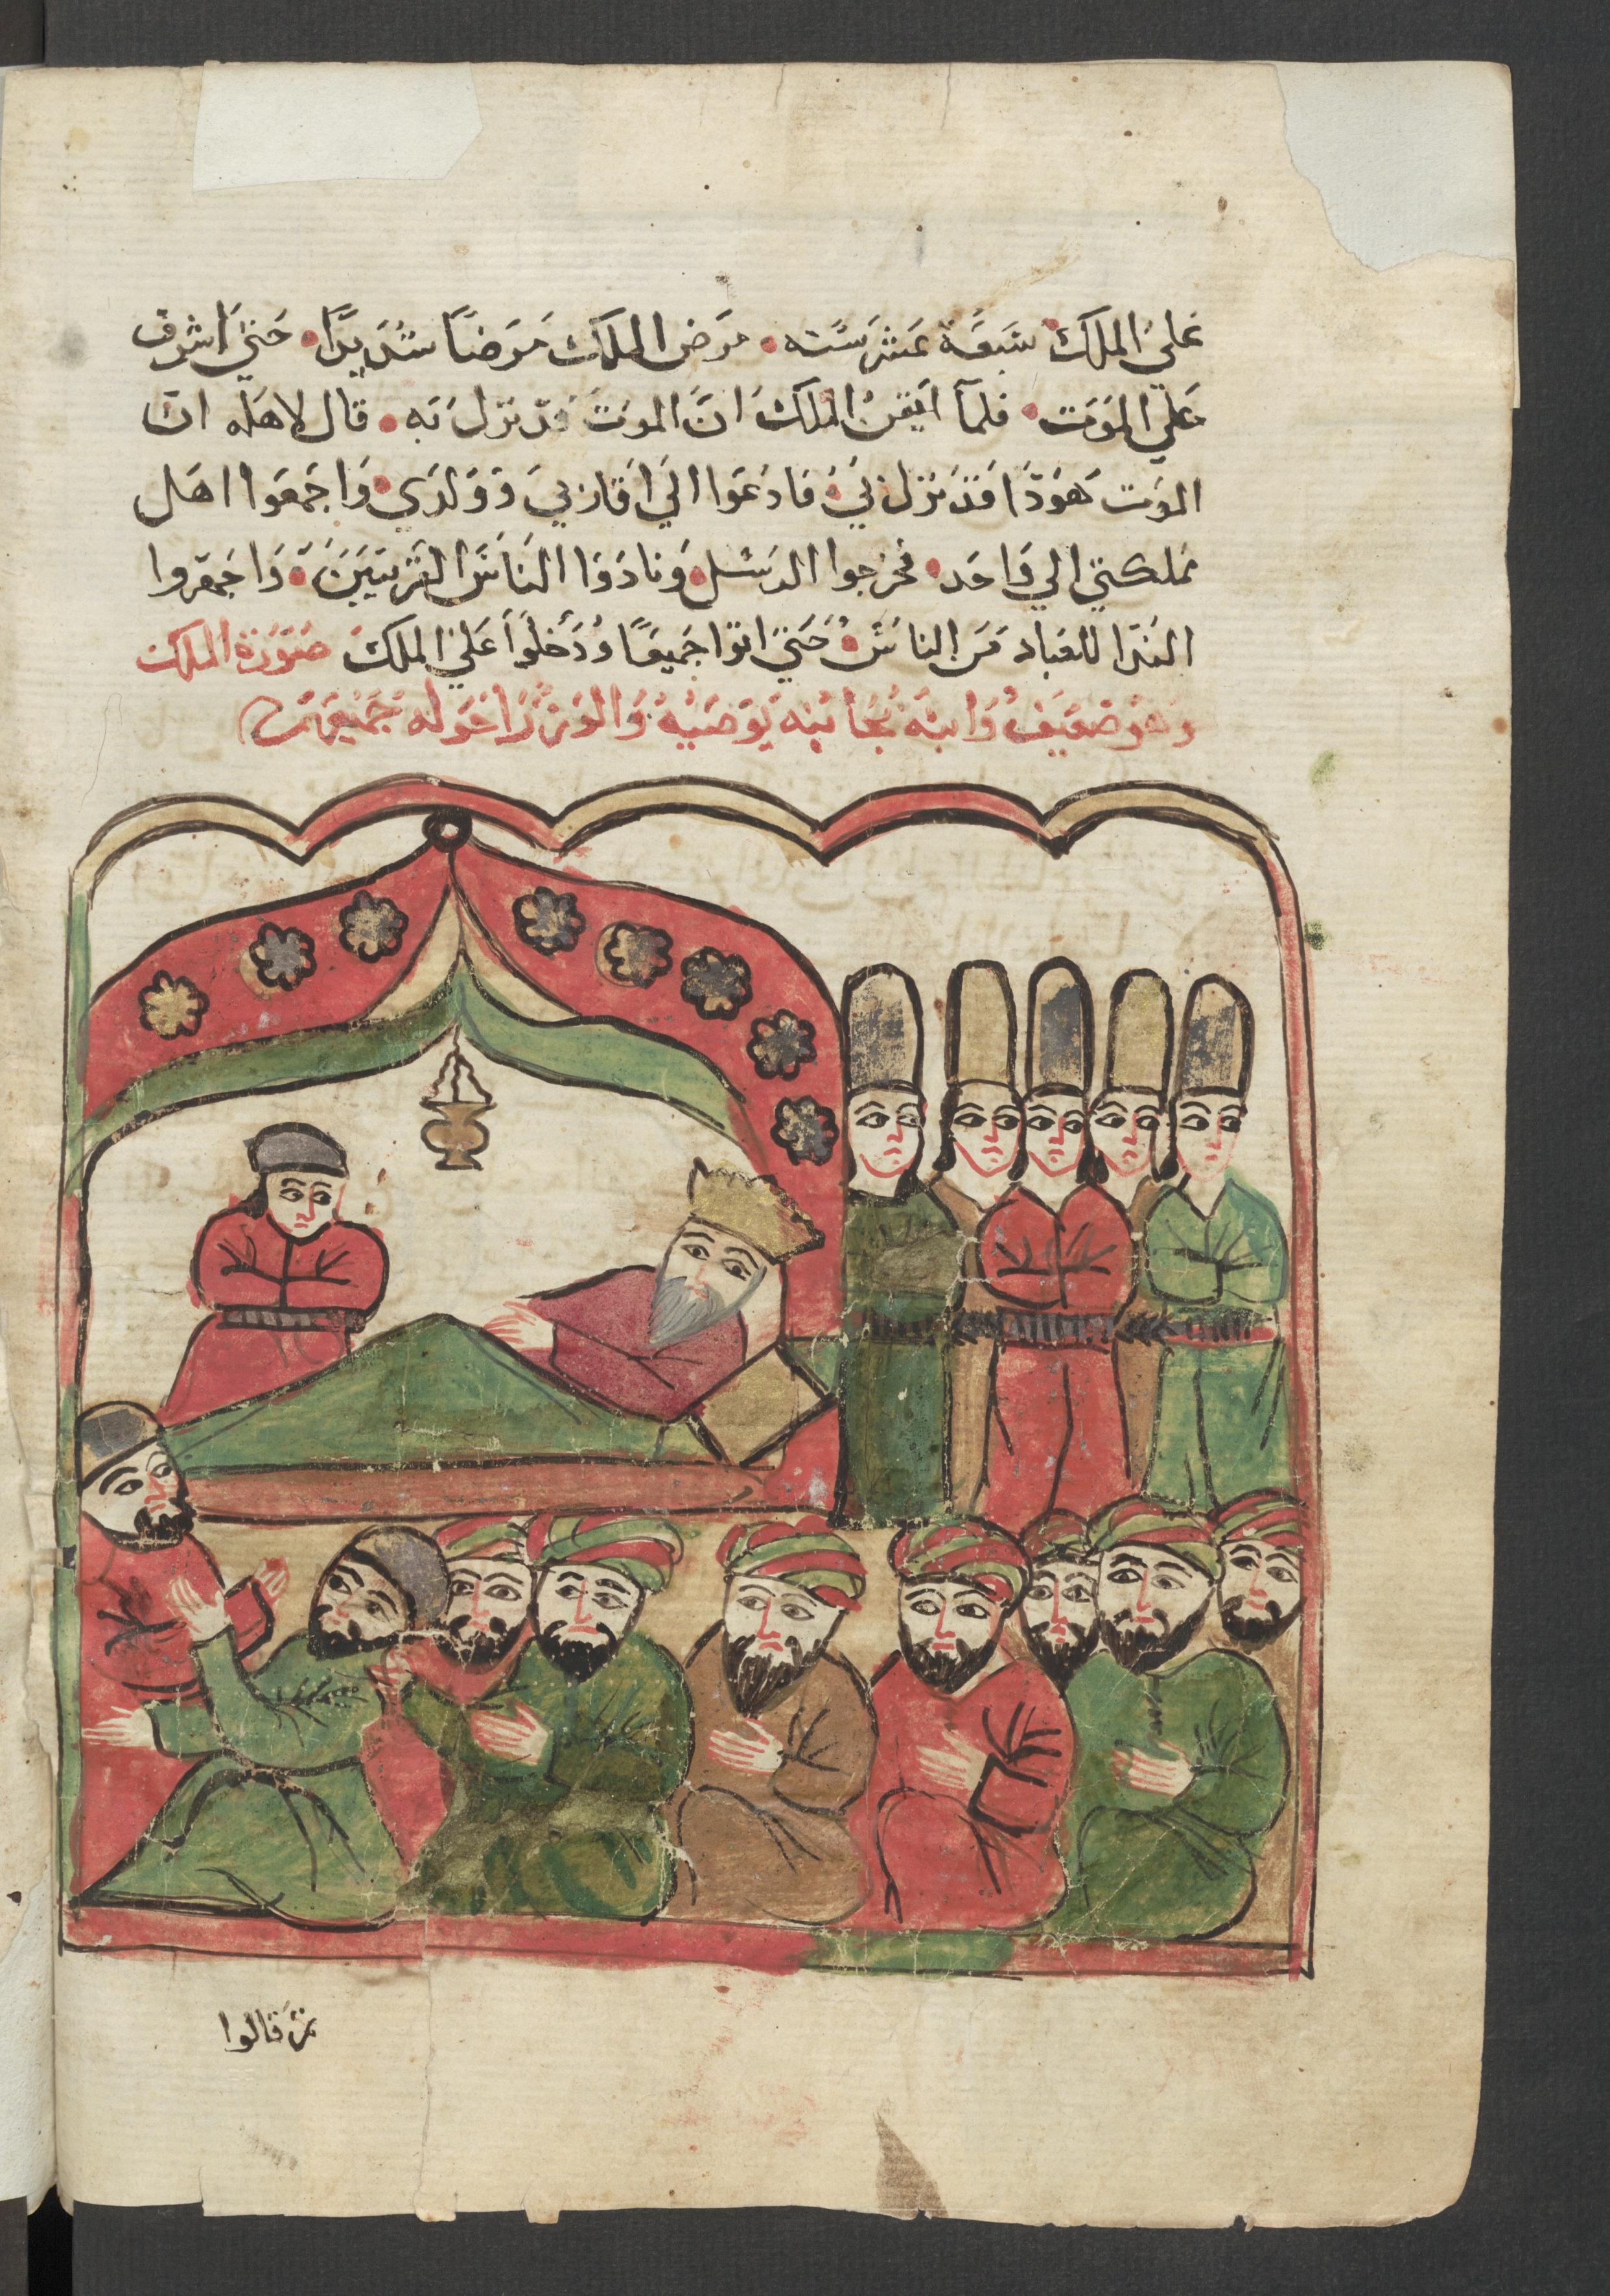 علي الملك سبعة عشر سنه مرض الملك مرضًا شديدًا حتي اشرف
علي الموت فلمآ ايقن الملك ان الموت قد نزل به قال لاهله ان
الموت هوذا قد نزل بي فادعوا الي اقاربي وولدي واجمعوا اهل
مملكتي الي واحد فخرجوا الرسل ونادوا الناس القريبين واجمعوا
من الناس حتي اتوا جميعًا ودخلوا علي الملك صورة الملك
وهو ضعيف وابنه بجانبه يوصيه والوزرا حوله جميعهم
ثم قالوا